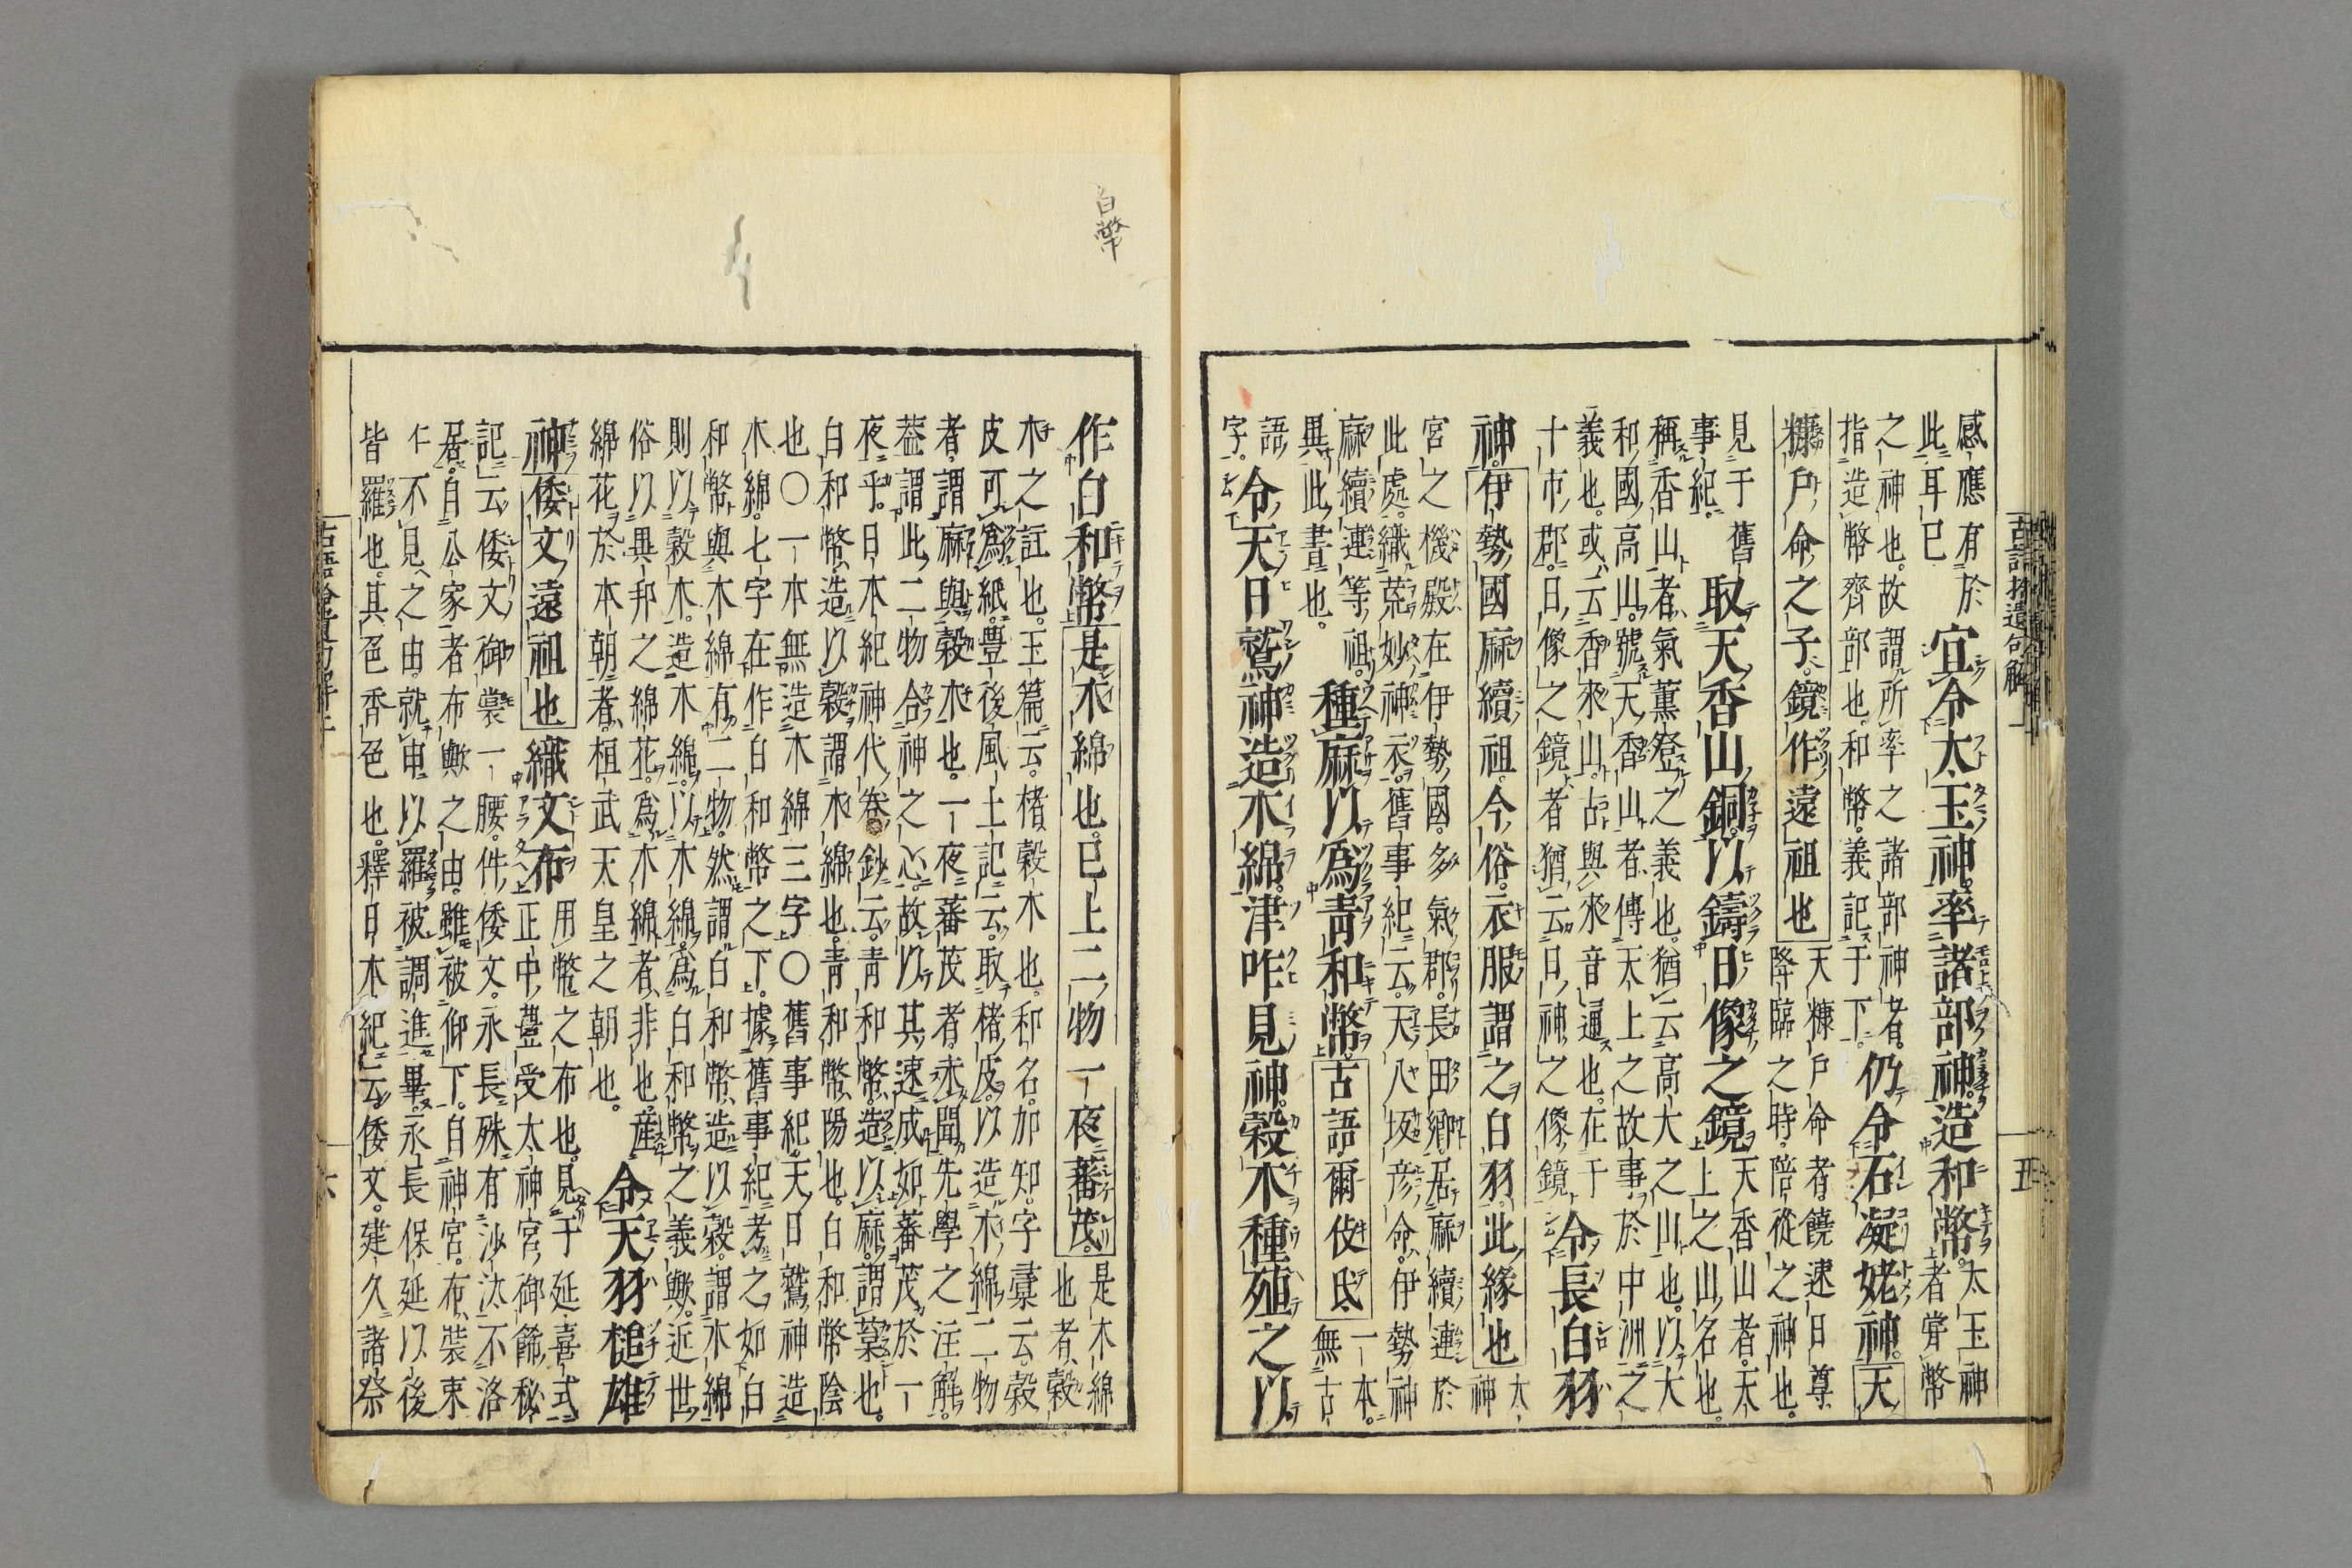 感應有於
此耳已
宜令太玉神率諸部神造和幣
太玉神
者嘗幣
之神也故謂所率之諸部神者
指造幣齊部也和幣義記于下
仍令石凝姥神天
糠戶命之子鏡作遠祖也
天糠戶命者饒速日尊
降臨之時陪從之神也
見于舊
事紀
取天香山銅以鑄日像之鏡
天香山者天
上之山名也
稱香山者氣薰登之義也猶云高大之山也以大
和國高山號天香山者傳天上之故事於中洲之
義也或云香來山占與來音通也在于
十市郡日像之鏡者猶云日神之像鏡
令長白羽
神伊勢國麻續祖今俗衣服謂之白羽此緣也
太
神
宮之機殿在伊勢國多氣郡長田鄉居麻續連於
此處織荒妙神衣舊事紀云天八坂彦命伊勢神
麻續連等祖
異此書也
種麻以為青和幣古語爾伎氐
一本
無古
語
字
令天日鷲神造木綿津咋見神穀木種殖之以
作白和幣是木綿也已上二物一夜蕃茂
是木綿
也者穀
木之註也玉篇云楮穀木也和名加知字彙云穀
皮可為紙豊後風土記云取楮皮以造木綿二物
者謂麻與穀木也一夜蕃茂者未聞先學之注解
蓋謂此二物合神之心故以其速成如蕃茂於一
夜乎日本紀神代卷鈔云青和幣造以麻謂葉也
白和幣造以穀謂木綿也青和幣陽也白和幣陰
也〇一本無造木綿三字〇舊事紀天日鷲神造
木綿七字在作白和幣之下據舊事紀考之如白
和幣與木綿有二物然謂白和幣造以穀謂木綿
則以穀木造木綿以木綿為白和幣之義歟近世
俗以異邦之綿花為木綿者非也產
綿花於本朝者植武天皇之朝也
令天羽槌雄
神倭文遠祖也織文布
用幣之布也見于延喜式
正中豊受太神宮御餝秘
記云倭文御裳一腰件倭文永長殊有沙汰不洛
居自公家者布歟之由雖被仰下自神宮布裝束
仁不見之由就申以羅被調進畢永長保延以後
皆羅也其色香色也釋日本紀云倭文建久諸祭
古語拾遺句解一
五
六
白幣